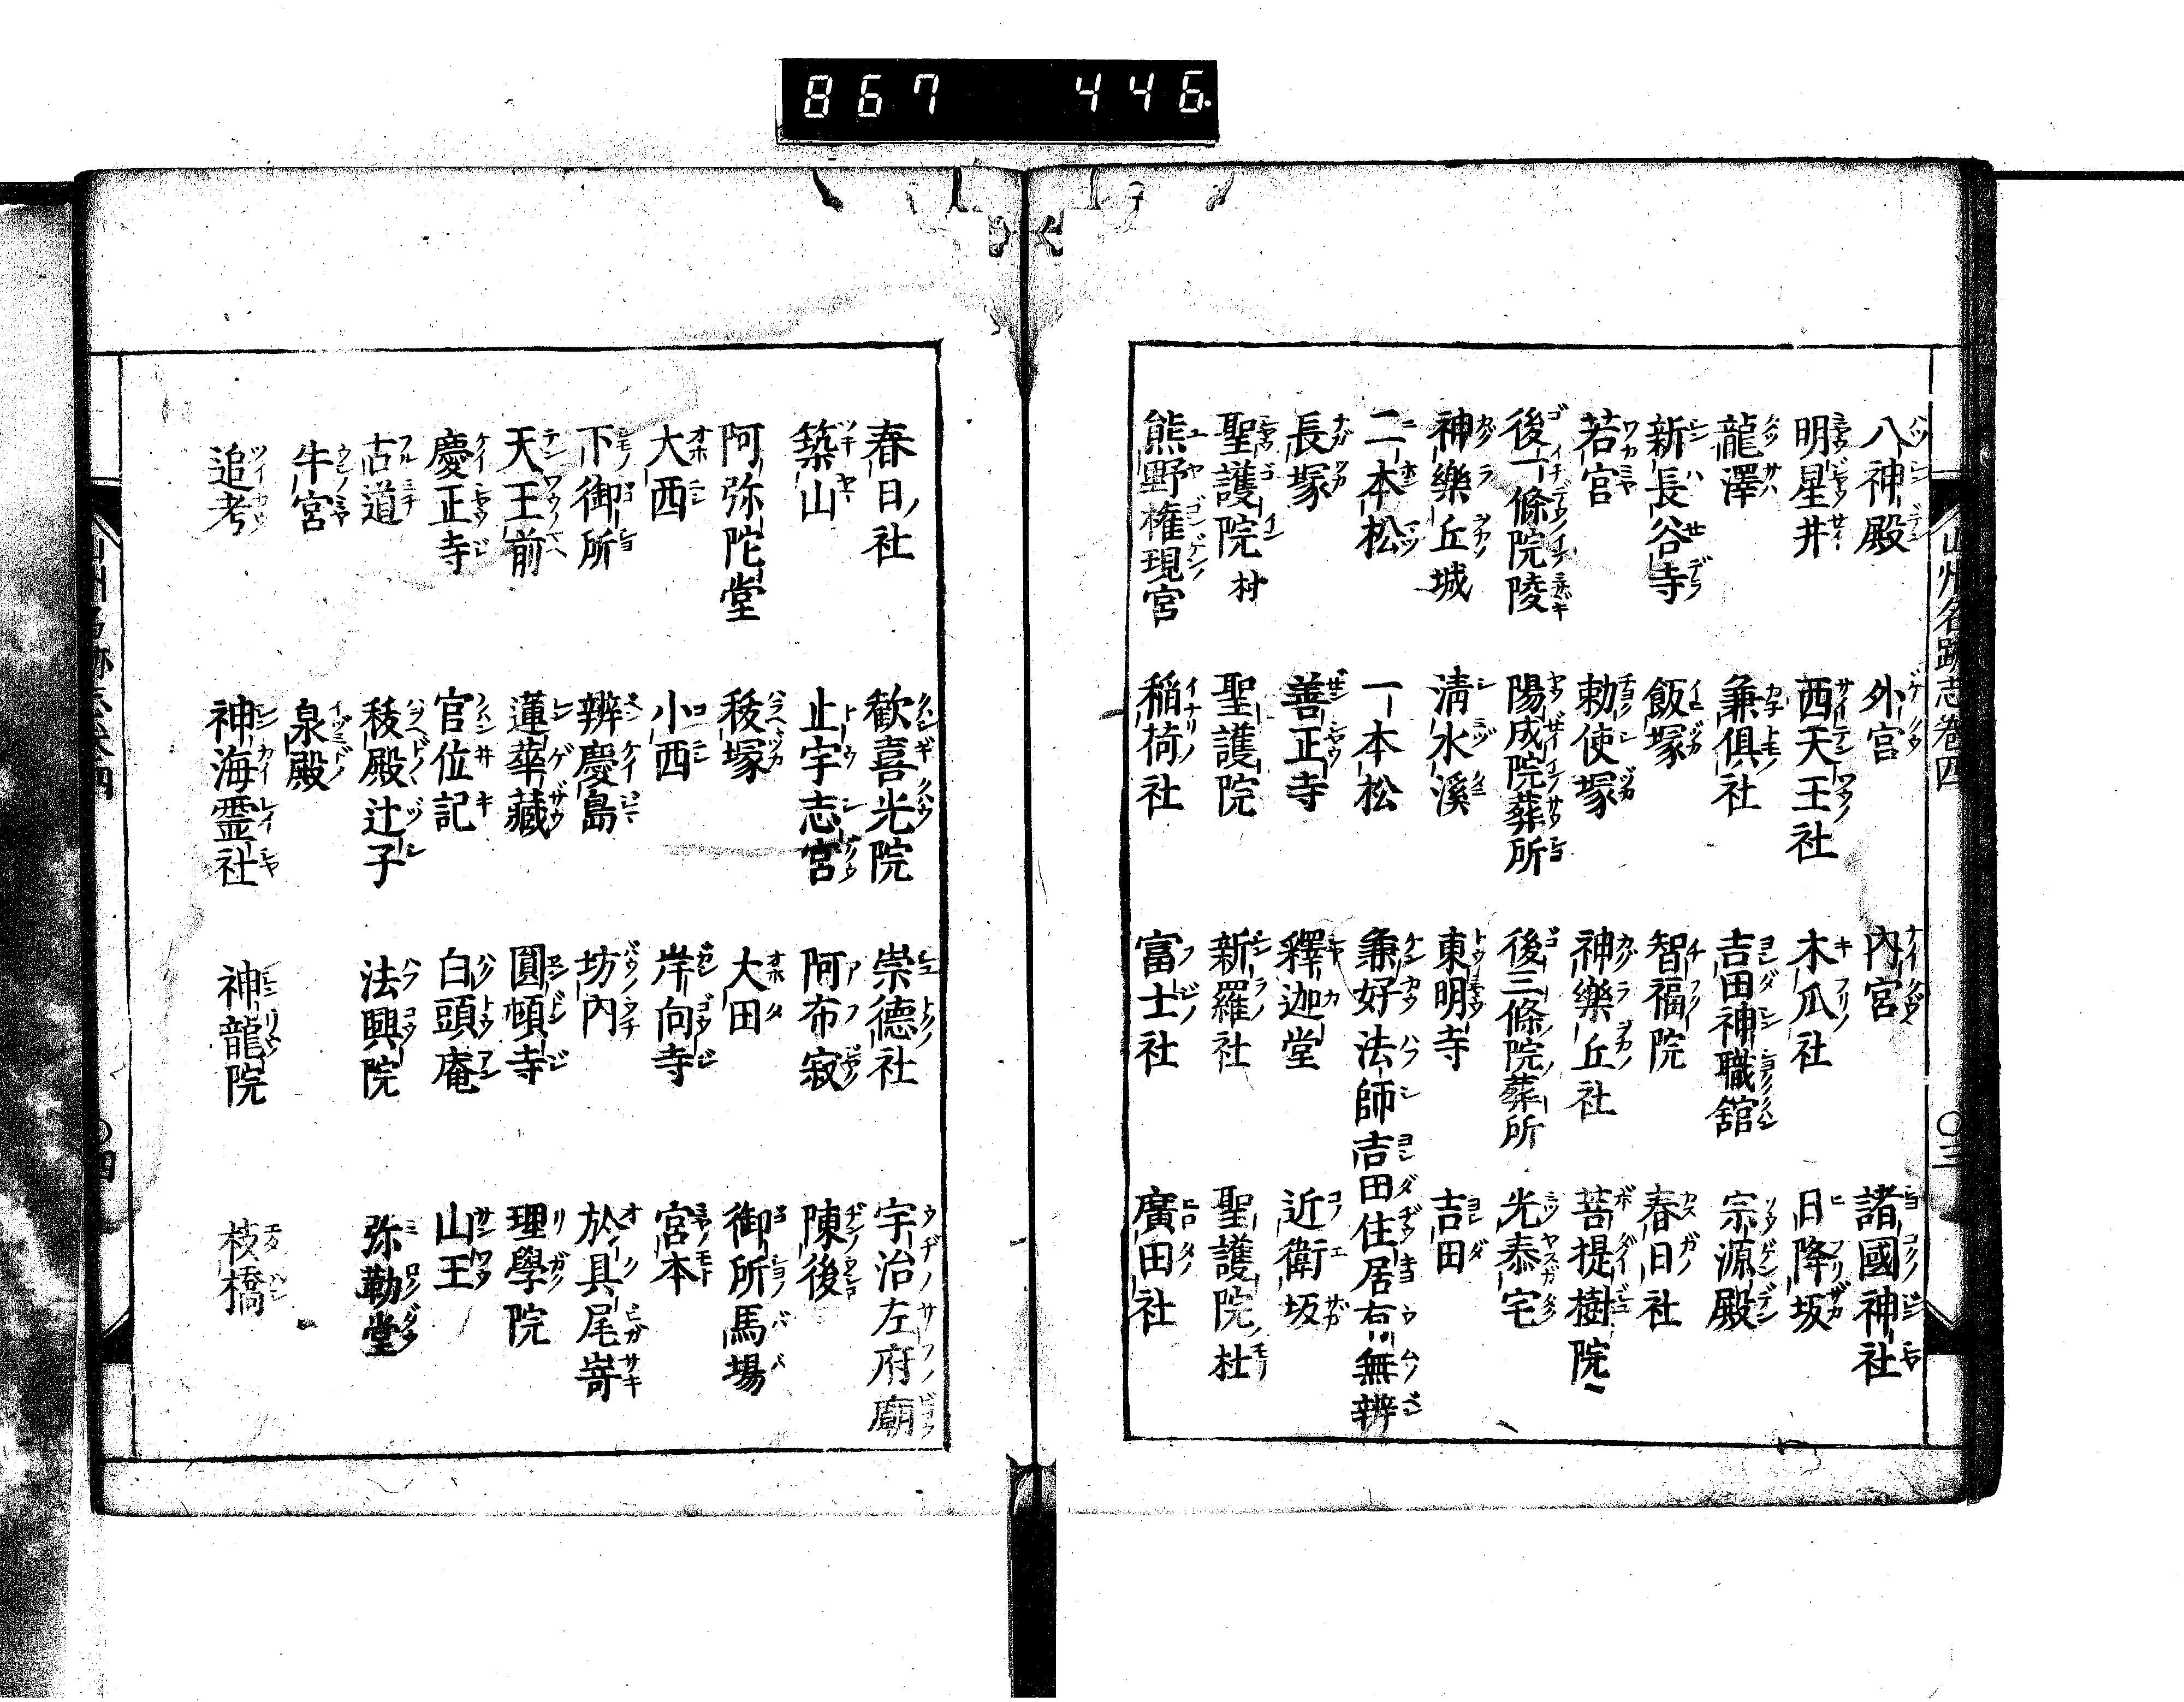 867 446
山州名跡志卷四
〇三
八神殿 外宮 內宮 諸國神社
明星井 西天王社 木瓜社 日降坂
龍澤 兼俱社 吉田神職舘 宗源殿
新長谷寺 飯塚 智福院 春日社
若宮 勅使塚 神樂丘社 菩提樹院
後一條院陵 陽成院葬所 後三條院葬所 光泰宅
神樂丘城 淸水溪 東明寺 吉田
二本松 一本松 兼好法師吉田住居有無辨
長塚 善正寺 釋迦堂 近衛坂
聖護院村 聖護院 新羅社 聖護院ノ杜
熊野権現宮 稲荷社 富士社 廣田社
春日ノ社 歓喜光院 崇德社 宇治左府廟
築山 止宇志宮 阿布寂 陳後
阿弥陀堂 秡塚 大田 御所馬場
大西 小西 岸向寺 宮本
下御所 辨慶島 坊內 於具尾嵜
天王前 蓮華藏 圓頓寺 理學院
慶正寺 官位記 白頭庵 山王
古道 秡殿辻子 法興院 弥勒堂
牛宮 泉殿
追考 神海霊社 神龍院 枝橋